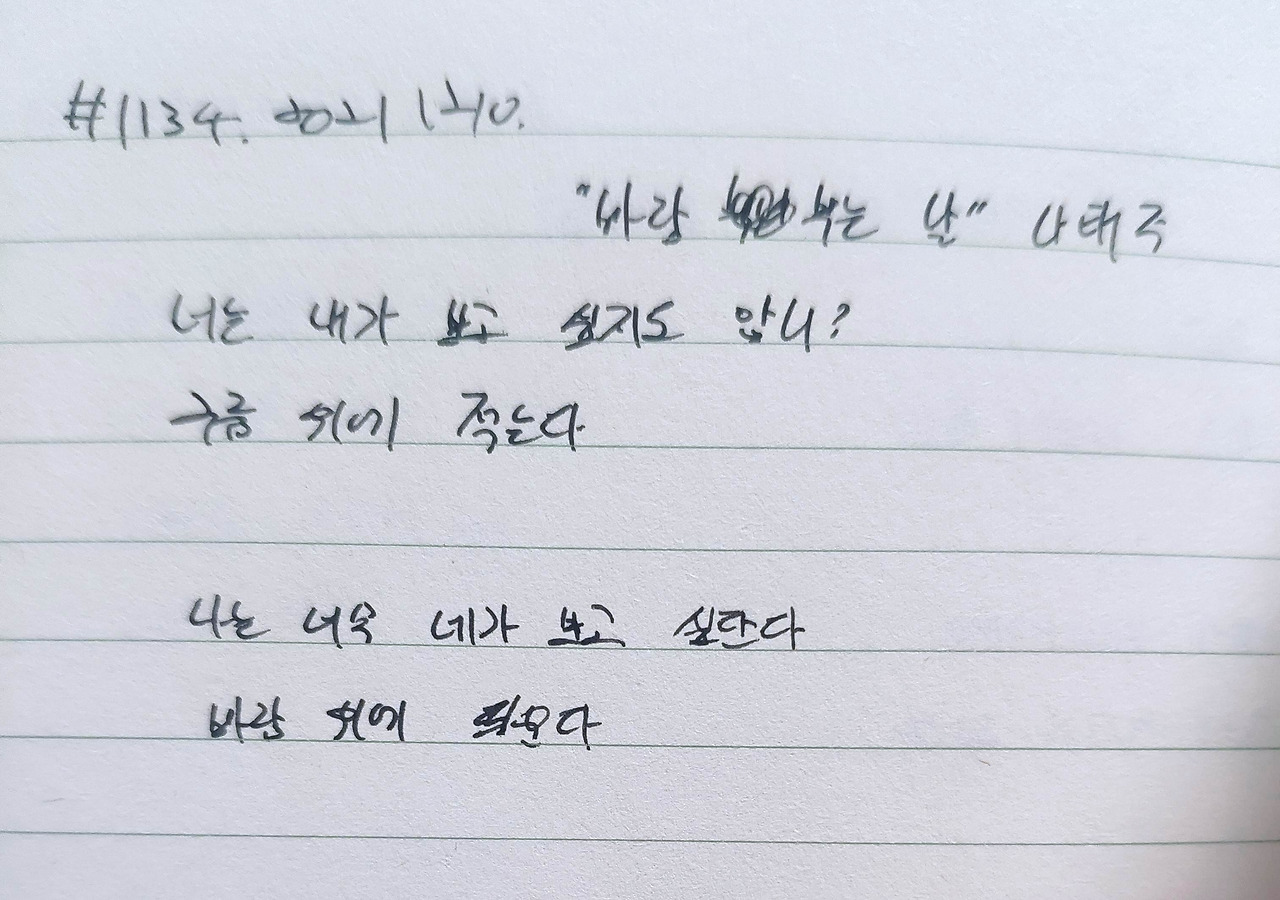 #1134.
"바람 부는 날" 나태주
너는 내가 보고 싶지도 않니?
구름 위에 적는다
나는 너무 네가 보고 싶단다
바람 위에 띄운다